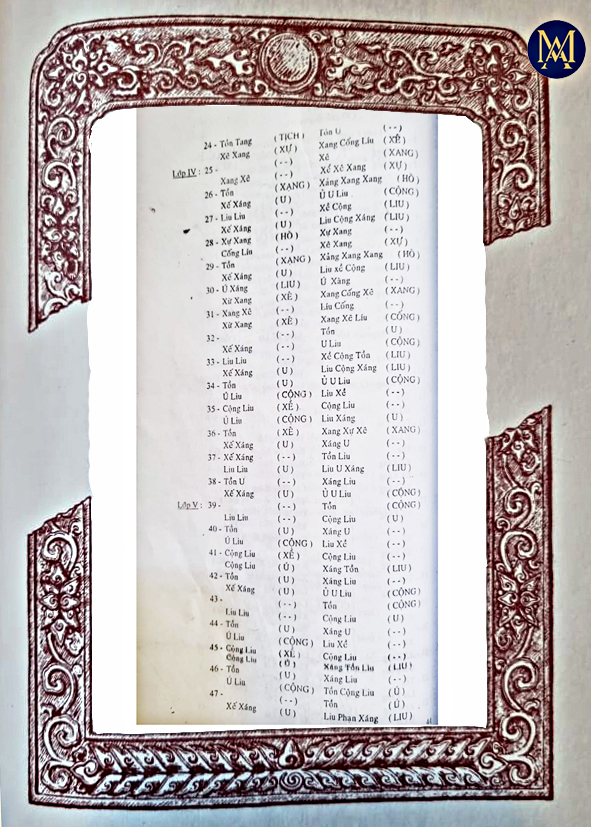 MA
24 - Tồn Tang (TỊCH) Tồn U (--)
Xê Xang (XỰ) Xang Cống Liu (XỀ)
Lớp IV: 25 - (--) Xê (XANG)
Xang Xê (--) Xế Xê Xang (XỰ)
26 - Tồn (XANG) Xáng Xang Xang (HÒ)
Xế Xáng (U) Ủ U Liu (CỘNG)
27 - Liu Liu (--) Xề Cộng (LIU)
Xế Xáng (U) Liu Cộng Xáng (LIU)
28 - Xự Xang (HÒ) Xự Xang (--)
Cống Liu (--) Xê Xang (XỰ)
29 - Tồn (XANG) Xảng Xang Xang (HÒ)
Xế Xáng (U) Liu xề Cộng (LIU)
30 - Ú Xáng (LIU) Ú Xàng (--)
Xừ Xang (XÊ) Xang Cống Xê (XANG)
31 - Xang Xê (--) Liu Cống (--)
Xừ Xang (XÊ) Xang Xê Liu (CỐNG)
32 - (--) Tồn (U)
Xế Xáng (--) U Liu (CỘNG)
33 - Liu Liu (--) Xề Cộng Tồn (LIU)
Xế Xáng (U) Liu Cộng Xáng (LIU)
34 - Tồn (U) Ủ U Liu (CỘNG)
Ú Liu (CỘNG) Liu Xề (--)
35 - Cộng Liu (XỀ) Cộng Liu (--)
Ú Liu (CỘNG) Liu Xáng (U)
36 - Tồn (XÊ) Xang Xự Xê (XANG)
Xế Xáng (U) Xáng U (--)
37 - Xế Xáng (--) Tồn Liu (--)
Liu Liu (U) Liu U Xáng (LIU)
38 - Tồn U (--) Xáng Liu (--)
Xế Xáng (U) Ủ U Liu (CỘNG)
Lớp V: 39 - (--) Tồn (CỘNG)
Liu Liu (--) Cộng Liu (U)
40 - Tồn (U) Xáng U (--)
Ú Liu (CỘNG) Liu Xề (--)
41 - Cộng Liu (XỀ) Cộng Liu (--)
Cộng Liu (Ú) Xáng Tồn (LIU)
42 - Tồn (U) Xáng Liu (--)
Xế Xáng (U) Ủ U Liu (CỘNG)
43 - (--) Tồn (CỘNG)
Liu Liu (--) Cộng Liu (U)
44 - Tồn (U) Xáng U (--)
Ú Liu (CỘNG) Liu Xề (--)
45 - Cộng Liu (XỀ) Cộng Liu (--)
Cộng Liu (Ú) Xáng Tồn Liu (LIU)
46 - Tồn (U) Xáng Liu (--)
Ú Liu (CỘNG) Tồn Cộng Liu (Ú)
47 - (--) Tồn (Ú)
Xế Xáng (U) Liu Phan Xáng (LIU)